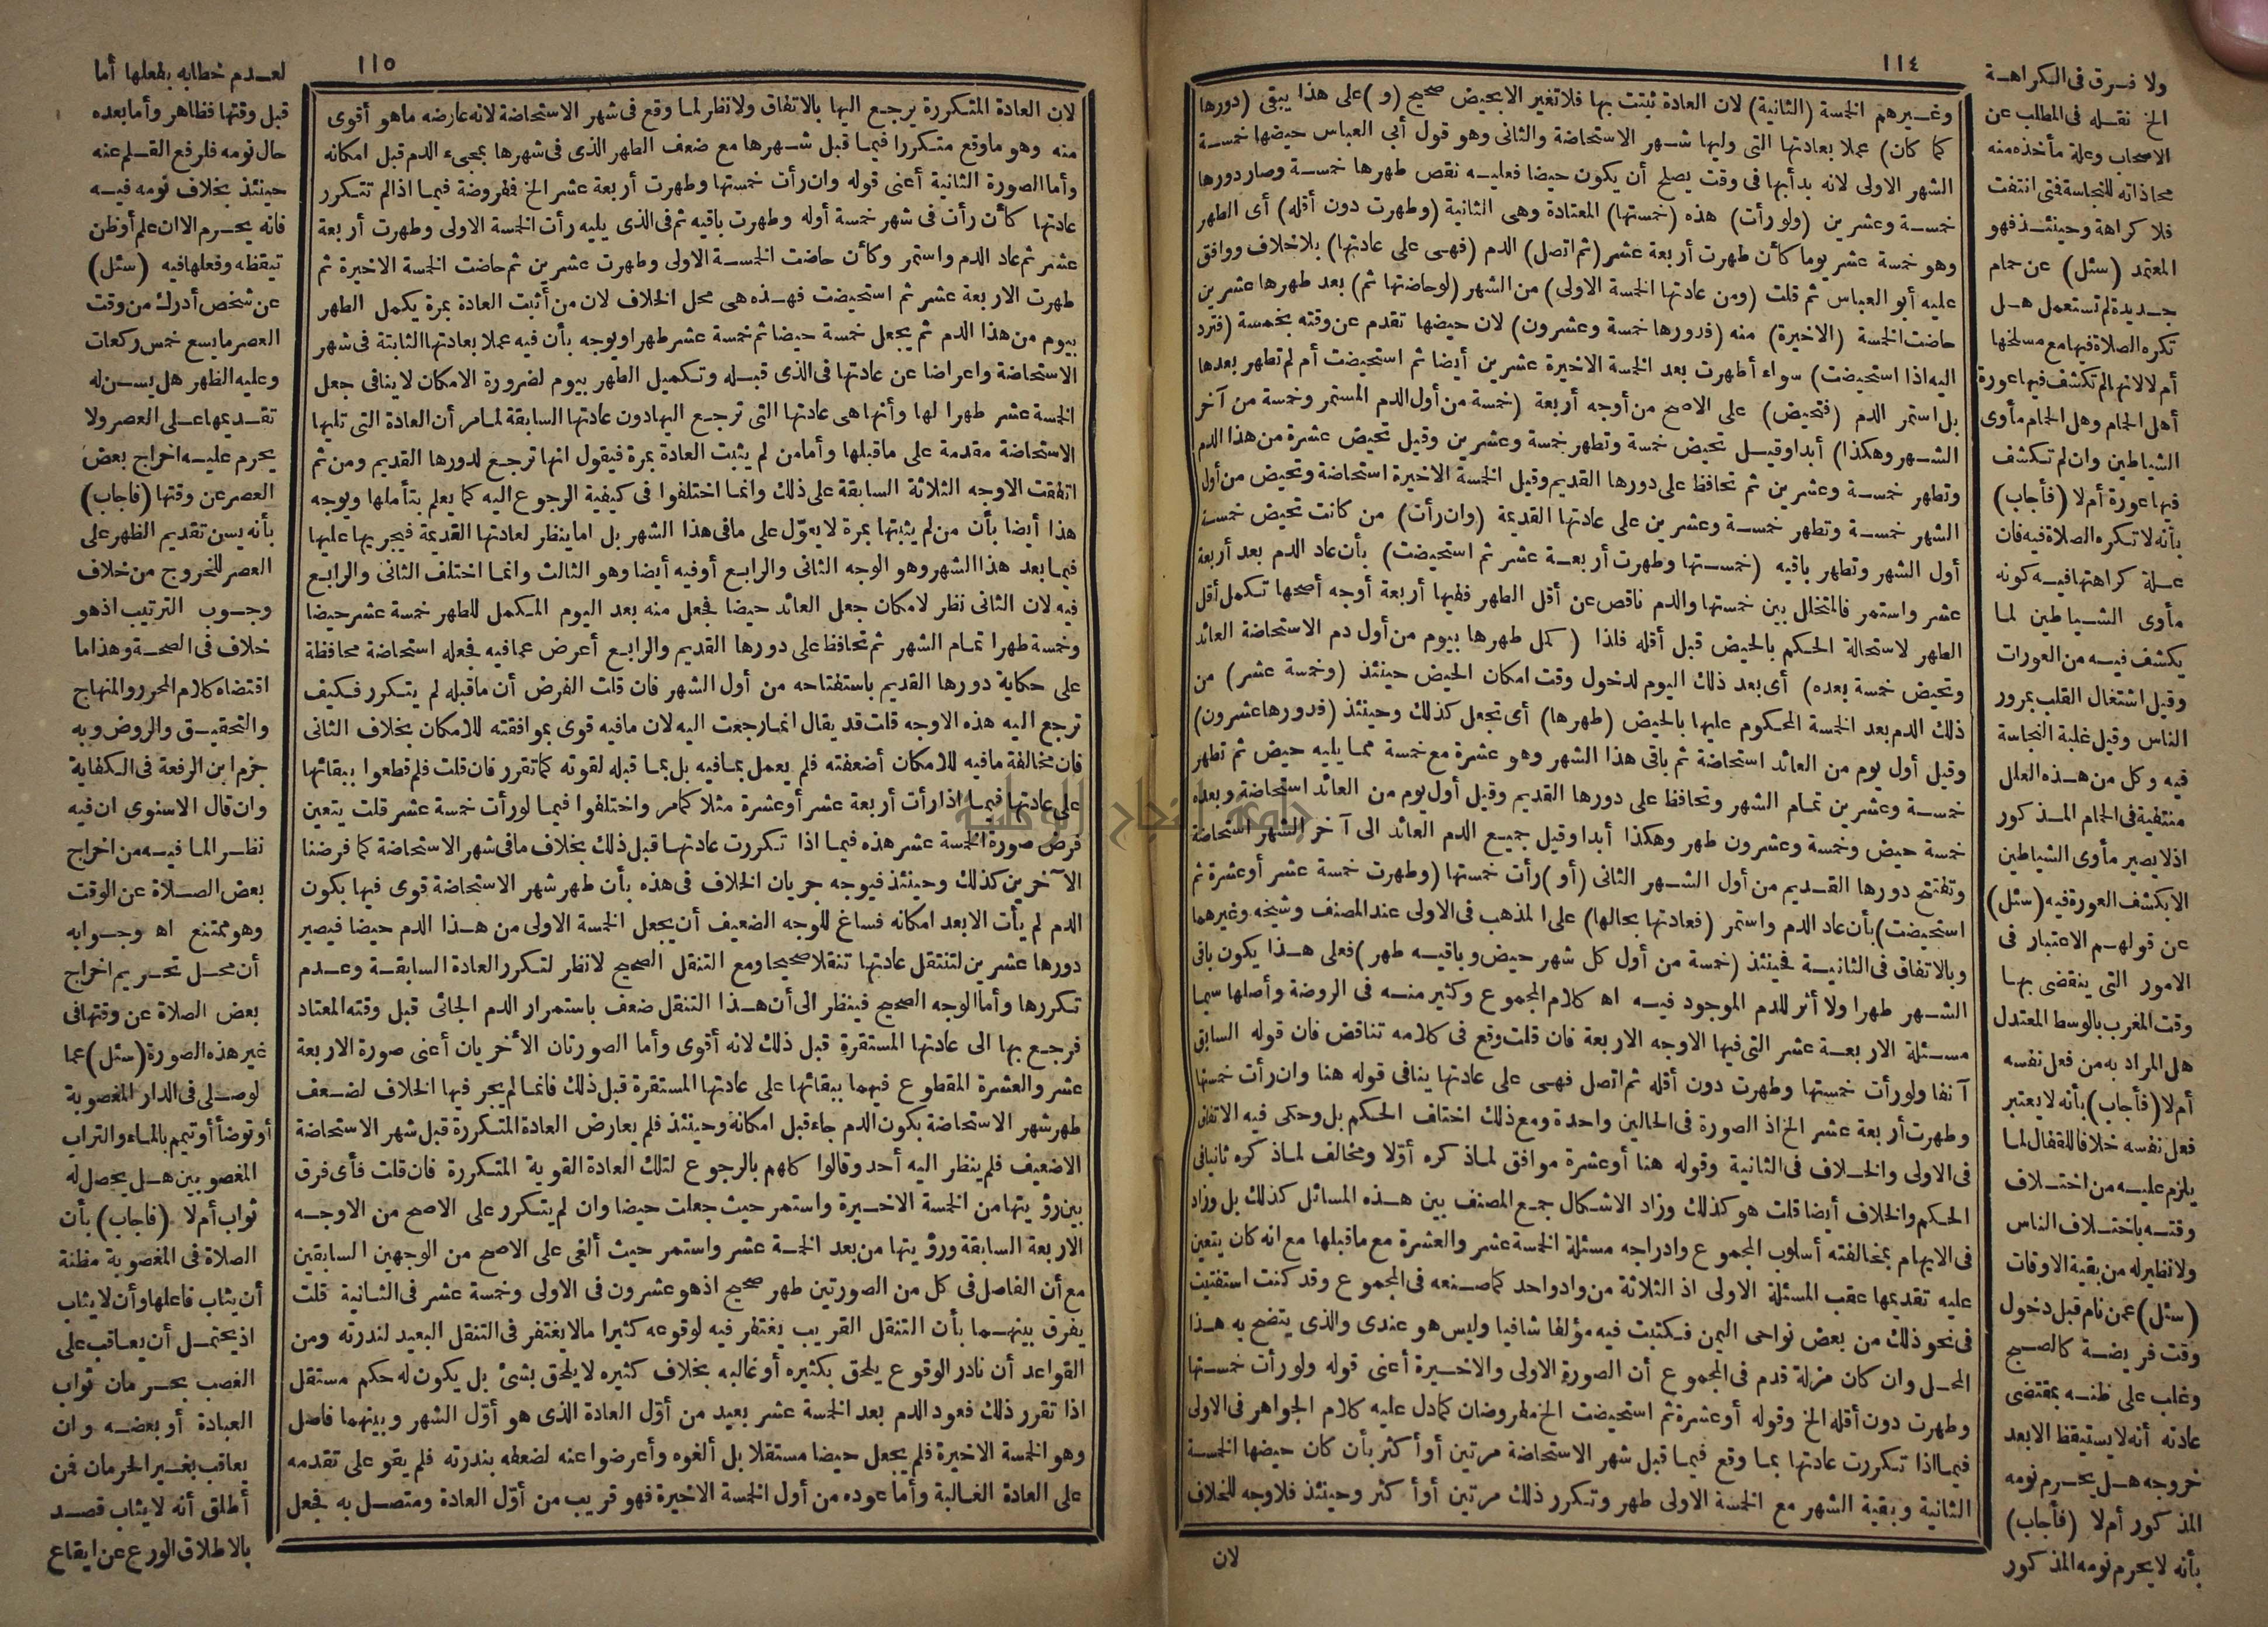 ١١٤
وغيرهم الخمسة (الثانية) لان العادة ثبتت بها فلا تغير الا بحيض صحيح (و) على هذا يبقى (دورها
كما كان) عملا بعادتها التى وليها شهر الاستحاضة والثانى وهو قول أبى العباس حيضها خمسة
الشهر الاولى لانه بدأ بها فى وقت يصلح أن يكون حيضا فعليه نقص طهرها خمسة وصار دورها
خمسة وعشرين (ولو رأت) هذه (خمستها) المعتادة وهى الثانية (وطهرت دون أقله) أى الطهر
وهو خمسة عشر يوما كأن طهرت أربعة عشر (ثم اتصل) الدم (فهى على عادتها) بلا خلاف ووافق
عليه أبو العباس ثم قلت (ومن عادتها الخمسة الاولى) من الشهر (لو حاضتها ثم) بعد طهرها عشرين
حاضت الخمسة (الاخيرة) منه (فدورها خمسة وعشرون) لان حيضها تقدم عن وقته بخمسة (فترد
اليه اذا استحيضت) سواء أطهرت بعد الخمسة الاخيرة عشرين أيضا ثم استحيضت أم لم تطهر بعدها
بل استمر الدم (فتحيض) على الاصح من أوجه أربعة (خمسة من أول الدم المستمر وخمسة من آخر
الشهر وهكذا) أبدا وقيل تحيض خمسة وتطهر خمسة وعشرين وقيل تحيض عشرة من هذا الدم
وتطهر خمسة وعشرين ثم تحافظ على دورها القديم وقيل الخمسة الاخيرة استحاضة وتحيض من أول
الشهر خمسة وتطهر خمسة وعشرين على عادتها القديمة (وان رأت) من كانت تحيض خمسة
أول الشهر وتطهر باقيه (خمستها وطهرت أربعة عشر ثم استحيضت) بأن عاد الدم بعد أربعة
عشر واستمر فالمتخلل بين خمستها والدم ناقص عن أقل الطهر ففيها أربعة أوجه أصحها تكمل أقل
الطهر لاستحالة الحكم بالحيض قبل أقله فلذا (كمل طهرها بيوم من أول دم الاستحاضة العائد
وتحيض خمسة بعده) أى بعد ذلك اليوم لدخول وقت امكان الحيض حينئذ (وخمسة عشر) من
ذلك الدم بعد الخمسة المحكوم عليها بالحيض (طهرها) أى تجعل كذلك وحينئذ (فدورها عشرون)
وقيل أول يوم من العائد استحاضة ثم باقى هذا الشهر وهو عشرة مع خمسة مما يليه حيض ثم تطهر
خمسة وعشرين تمام الشهر وتحافظ على دورها القديم وقيل أول يوم من العائد استحاضة وبعده
خمسة حيض وخمسة وعشرون طهر وهكذا أبدا وقيل جميع الدم العائد الى آخر الشهر استحاضة
وتفتتح دورها القديم من أول الشهر الثانى (أو) رأت خمستها (وطهرت خمسة عشر أو عشرة ثم
استحيضت) بأن عاد الدم واستمر (فعادتها بحالها) على المذهب فى الاولى عند المصنف وشيخه وغيرهما
وبالاتفاق فى الثانية فحينئذ (خمسة من أول كل شهر حيض وباقيه طهر) فعلى هذا يكون باقى
الشهر طهرا ولا أثر للدم الموجود فيه اه كلام المجموع وكثير منه فى الروضة وأصلها سيما
مسئلة الاربعة عشر التى فيها الاوجه الاربعة فان قلت وقع فى كلامه تناقض فان قوله السابق
آنفا ولو رأت خمستها وطهرت دون أقله ثم اتصل فهى على عادتها ينافى قوله هنا وان رأت خمستها
وطهرت أربعة عشر الخ اذ الصورة فى الحالين واحدة ومع ذلك اختلف الحكم بل وحكى فيه الاتفاق
فى الاولى والخلاف فى الثانية وقوله هنا أو عشرة موافق لما ذكره أولا ومخالف لما ذكره ثانيا فى
الحكم والخلاف أيضا قلت هو كذلك وزاد الاشكال جمع المصنف بين هذه المسائل كذلك بل وزاد
فى الايهام بمخالفته أسلوب المجموع وادراجه مسئلة الخمسة عشر والعشرة مع ما قبلها مع انه كان يتعين
عليه تقديمها عقب المسئلة الاولى اذ الثلاثة من واد واحد كما صنعه فى المجموع وقد كنت استفتيت
فى نحو ذلك من بعض نواحى اليمن فكتبت فيه مؤلفا شافيا وليس هو عندى والذى يتضح به هذا
المحل وان كان مزلة قدم فى المجموع أن الصورة الاولى والاخيرة أعنى قوله ولو رأت خمستها
وطهرت دون أقله الخ وقوله أو عشرة ثم استحيضت الخ مفروضان كما دل عليه كلام الجواهر فى الاولى
فيما اذا تكررت عادتها بما وقع فيما قبل شهر الاستحاضة مرتين أو أكثر بأن كان حيضها الخمسة
الثانية وبقية الشهر مع الخمسة الاولى طهر وتكرر ذلك مرتين أو أكثر وحينئذ فلا وجه للخلاف
لان
ولا فرق فى الكراهة
الخ نقله فى المطلب عن
الاصحاب وعلة مأخذه منه
محاذاته للنجاسة فتى انتفت
فلا كراهة وحينئذ فهو
المعتمد (سئل) عن حمام
جديدة لم تستعمل هل
تكره الصلاة فيها مع مسلخها
أم لا لانها لم تكشف فيها عورة
أهل الحمام وهل الحمام مأوى
الشياطين وان لم تكشف
فيها عورة أم لا (فأجاب)
بأنه لا تكره الصلاة فيه فان
علة كراهتها فيه كونه
مأوى الشياطين لما
يكشف فيه من العورات
وقيل اشتغال القلب بمرور
الناس وقيل غلبة النجاسة
فيه وكل من هذه العلل
منتفية فى الحمام المذكور
اذ لا يصير مأوى الشياطين
الا بكشف العورة فيه (سئل)
عن قولهم الاعتبار فى
الامور التى ينقضى بها
وقت المغرب بالوسط المعتدل
هل المراد به من فعل نفسه
أم لا (فأجاب) بأنه لا يعتبر
فعل نفسه خلافا للقفال لما
يلزم عليه من اختلاف
وقته باختلاف الناس
ولا نظير له من بقية الاوقات
(سئل) عمن نام قبل دخول
وقت فريضة كالصبح
وغلب على ظنه بمقتضى
عادته أنه لا يستيقظ الا بعد
خروجه هل يحرم نومه
المذكور أم لا (فأجاب)
بأنه لا يحرم نومه المذكور
١١٥
لان العادة المتكررة يرجع اليها بالاتفاق ولا نظر لما وقع فى شهر الاستحاضة لانه عارضه ما هو أقوى
منه وهو ما وقع متكررا فيما قبل شهرها مع ضعف الطهر الذى فى شهرها بمجىء الدم قبل امكانه
وأما الصورة الثانية أعنى قوله وان رأت خمستها وطهرت أربعة عشر الخ ففروضة فيما اذا لم تتكرر
عادتها كأن رأت فى شهر خمسة أوله وطهرت باقيه ثم فى الذى يليه رأت الخمسة الاولى وطهرت أربعة
عشر ثم عاد الدم واستمر وكأن حاضت الخمسة الاولى وطهرت عشرين ثم حاضت الخمسة الاخيرة ثم
طهرت الاربعة عشر ثم استحيضت فهذه هى محل الخلاف لان من أثبت العادة بمرة يكمل الطهر
بيوم من هذا الدم ثم يجعل خمسة حيضا ثم خمسة عشر طهرا ويوجه بأن فيه عملا بعادتها الثابتة فى شهر
الاستحاضة واعراضا عن عادتها فى الذى قبله وتكميل الطهر بيوم لضرورة الامكان لا ينافى جعل
الخمسة عشر طهرا لها وأنها هى عادتها التى ترجع اليها دون عادتها السابقة لما مر أن العادة التى تليها
الاستحاضة مقدمة على ما قبلها وأما من لم يثبت العادة بمرة فيقول انها ترجع لدورها القديم ومن ثم
اتفقت الاوجه الثلاثة السابقة على ذلك وانما اختلفوا فى كيفية الرجوع اليه كما يعلم بتأملها ويوجه
هذا أيضا بأن من لم يثبتها بمرة لا يعوّل على ما فى هذا الشهر بل اما ينظر لعادتها القديمة فيجريها عليها
فيما بعد هذا الشهر وهو الوجه الثانى والرابع أو فيه أيضا وهو الثالث وانما اختلف الثانى والرابع
فيه لان الثانى نظر لامكان جعل العائد حيضا فجعل منه بعد اليوم المكمل للطهر خمسة عشر حيضا
وخمسة طهرا تمام الشهر ثم تحافظ على دورها القديم والرابع أعرض عما فيه فجعله استحاضة محافظة
على حكاية دورها القديم باستفتاحه من أول الشهر فان قلت الفرض أن ما قبله لم يتكرر فكيف
ترجع اليه هذه الاوجه قلت قد يقال انما رجعت اليه لان ما فيه قوى بموافقته للامكان بخلاف الثانى
فان مخالفة ما فيه للامكان أضعفته فلم يعمل بما فيه بل بما قبله لقوته كما تقرر فان قلت فلم قطعوا ببقائها
على عادتها فيما اذا رأت أربعة عشر أو عشرة مثلا كما مر واختلفوا فيما لو رأت خمسة عشر قلت يتعين
فرض صورة الخمسة عشر هذه فيما اذا تكررت عادتها قبل ذلك بخلاف ما فى شهر الاستحاضة كما فرضنا
الآخرين كذلك وحينئذ فيوجه جريان الخلاف فى هذه بأن طهر شهر الاستحاضة قوى فيها بكون
الدم لم يأت الا بعد امكانه فساغ للوجه الضعيف أن يجعل الخمسة الاولى من هذا الدم حيضا فيصير
دورها عشرين لتنتقل عادتها تنقلا صحيحا ومع التنقل الصحيح لا نظر لتكرر العادة السابقة وعدم
تكررها وأما الوجه الصحيح فينظر الى أن هذا التنقل ضعف باستمرار الدم الجائى قبل وقته المعتاد
فرجع بها الى عادتها المستقرة قبل ذلك لانه أقوى وأما الصورتان الأخريان أعنى صورة الاربعة
عشر والعشرة المقطوع فيهما ببقائها على عادتها المستقرة قبل ذلك فانما لم يجر فيها الخلاف لضعف
طهر شهر الاستحاضة بكون الدم جاء قبل امكانه وحينئذ فلم يعارض العادة المتكررة قبل شهر الاستحاضة
الاضعيف فلم ينظر اليه أحد وقالوا كلهم بالرجوع لتلك العادة القوية المتكررة فان قلت فأى فرق
بين رؤيتها من الخمسة الاخيرة واستمر حيث جعلت حيضا وان لم يتكرر على الاصح من الاوجه
الاربعة السابقة ورؤيتها من بعد الخمسة عشر واستمر حيث ألغى على الاصح من الوجهين السابقين
مع أن الفاصل فى كل من الصورتين طهر صحيح اذ هو عشرون فى الاولى وخمسة عشر فى الثانية قلت
يفرق بينهما بأن التنقل القريب يغتفر فيه لوقوعه كثيرا ما لا يغتفر فى التنقل البعيد لندرته ومن
القواعد أن نادر الوقوع يلحق بكثيره أو غالبه بخلاف كثيره لا يلحق بشئ بل يكون له حكم مستقل
اذا تقرر ذلك فعود الدم بعد الخمسة عشر بعيد من أوّل العادة الذى هو أوّل الشهر وبينهما فاصل
وهو الخمسة الاخيرة فلم يجعل حيضا مستقلا بل ألغوه وأعرضوا عنه لضعفه بندرته فلم يقو على تقدمه
على العادة الغالبة وأما عوده من أول الخمسة الاخيرة فهو قريب من أوّل العادة ومتصل به فجعل
لعدم خطابه بفعلها أما
قبل وقتها فظاهر وأما بعده
حال نومه فلرفع القلم عنه
حينئذ بخلاف نومه فيه
فانه يحرم الا ان علم أو ظن
تيقظه وفعلها فيه (سئل)
عن شخص أدرك من وقت
العصر ما يسع خمس ركعات
وعليه الظهر هل يسن له
تقديمها على العصر ولا
يحرم عليه اخراج بعض
العصر عن وقتها (فأجاب)
بأنه يسن تقديم الظهر على
العصر للخروج من خلاف
وجوب الترتيب اذ هو
خلاف فى الصحة وهذا ما
اقتضاه كلام المحرر والمنهاج
والتحقيق والروض وبه
جزم ابن الرفعة فى الكفاية
وان قال الاسنوى ان فيه
نظر الما فيه من اخراج
بعض الصلاة عن الوقت
وهو ممتنع اه وجوابه
أن محل تحريم اخراج
بعض الصلاة عن وقتها فى
غير هذه الصورة (سئل) عما
لو صلى فى الدار المغصوبة
أو توضأ أو تيمم بالماء والتراب
المغصوبين هل يحصل له
ثواب أم لا (فأجاب) بأن
الصلاة فى المغصوبة مظنة
أن يثاب فاعلها وأن لا يثاب
اذ يحتمل أن يعاقب على
الغصب بحرمان ثواب
العبادة أو بعضه وان
يعاقب بغير الحرمان فمن
أطلق أنه لا يثاب قصد
بالاطلاق الورع عن ايقاع
جامعة النجاح الوطنية